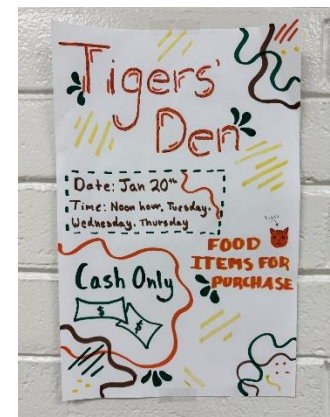 Tigers'
Den
Date: Jan 20th
Time: Noon hour, Tuesday.
Wednesday. Thursday
FOOD
ITEMS FOR
PURCHASE
Cash Only
$
$